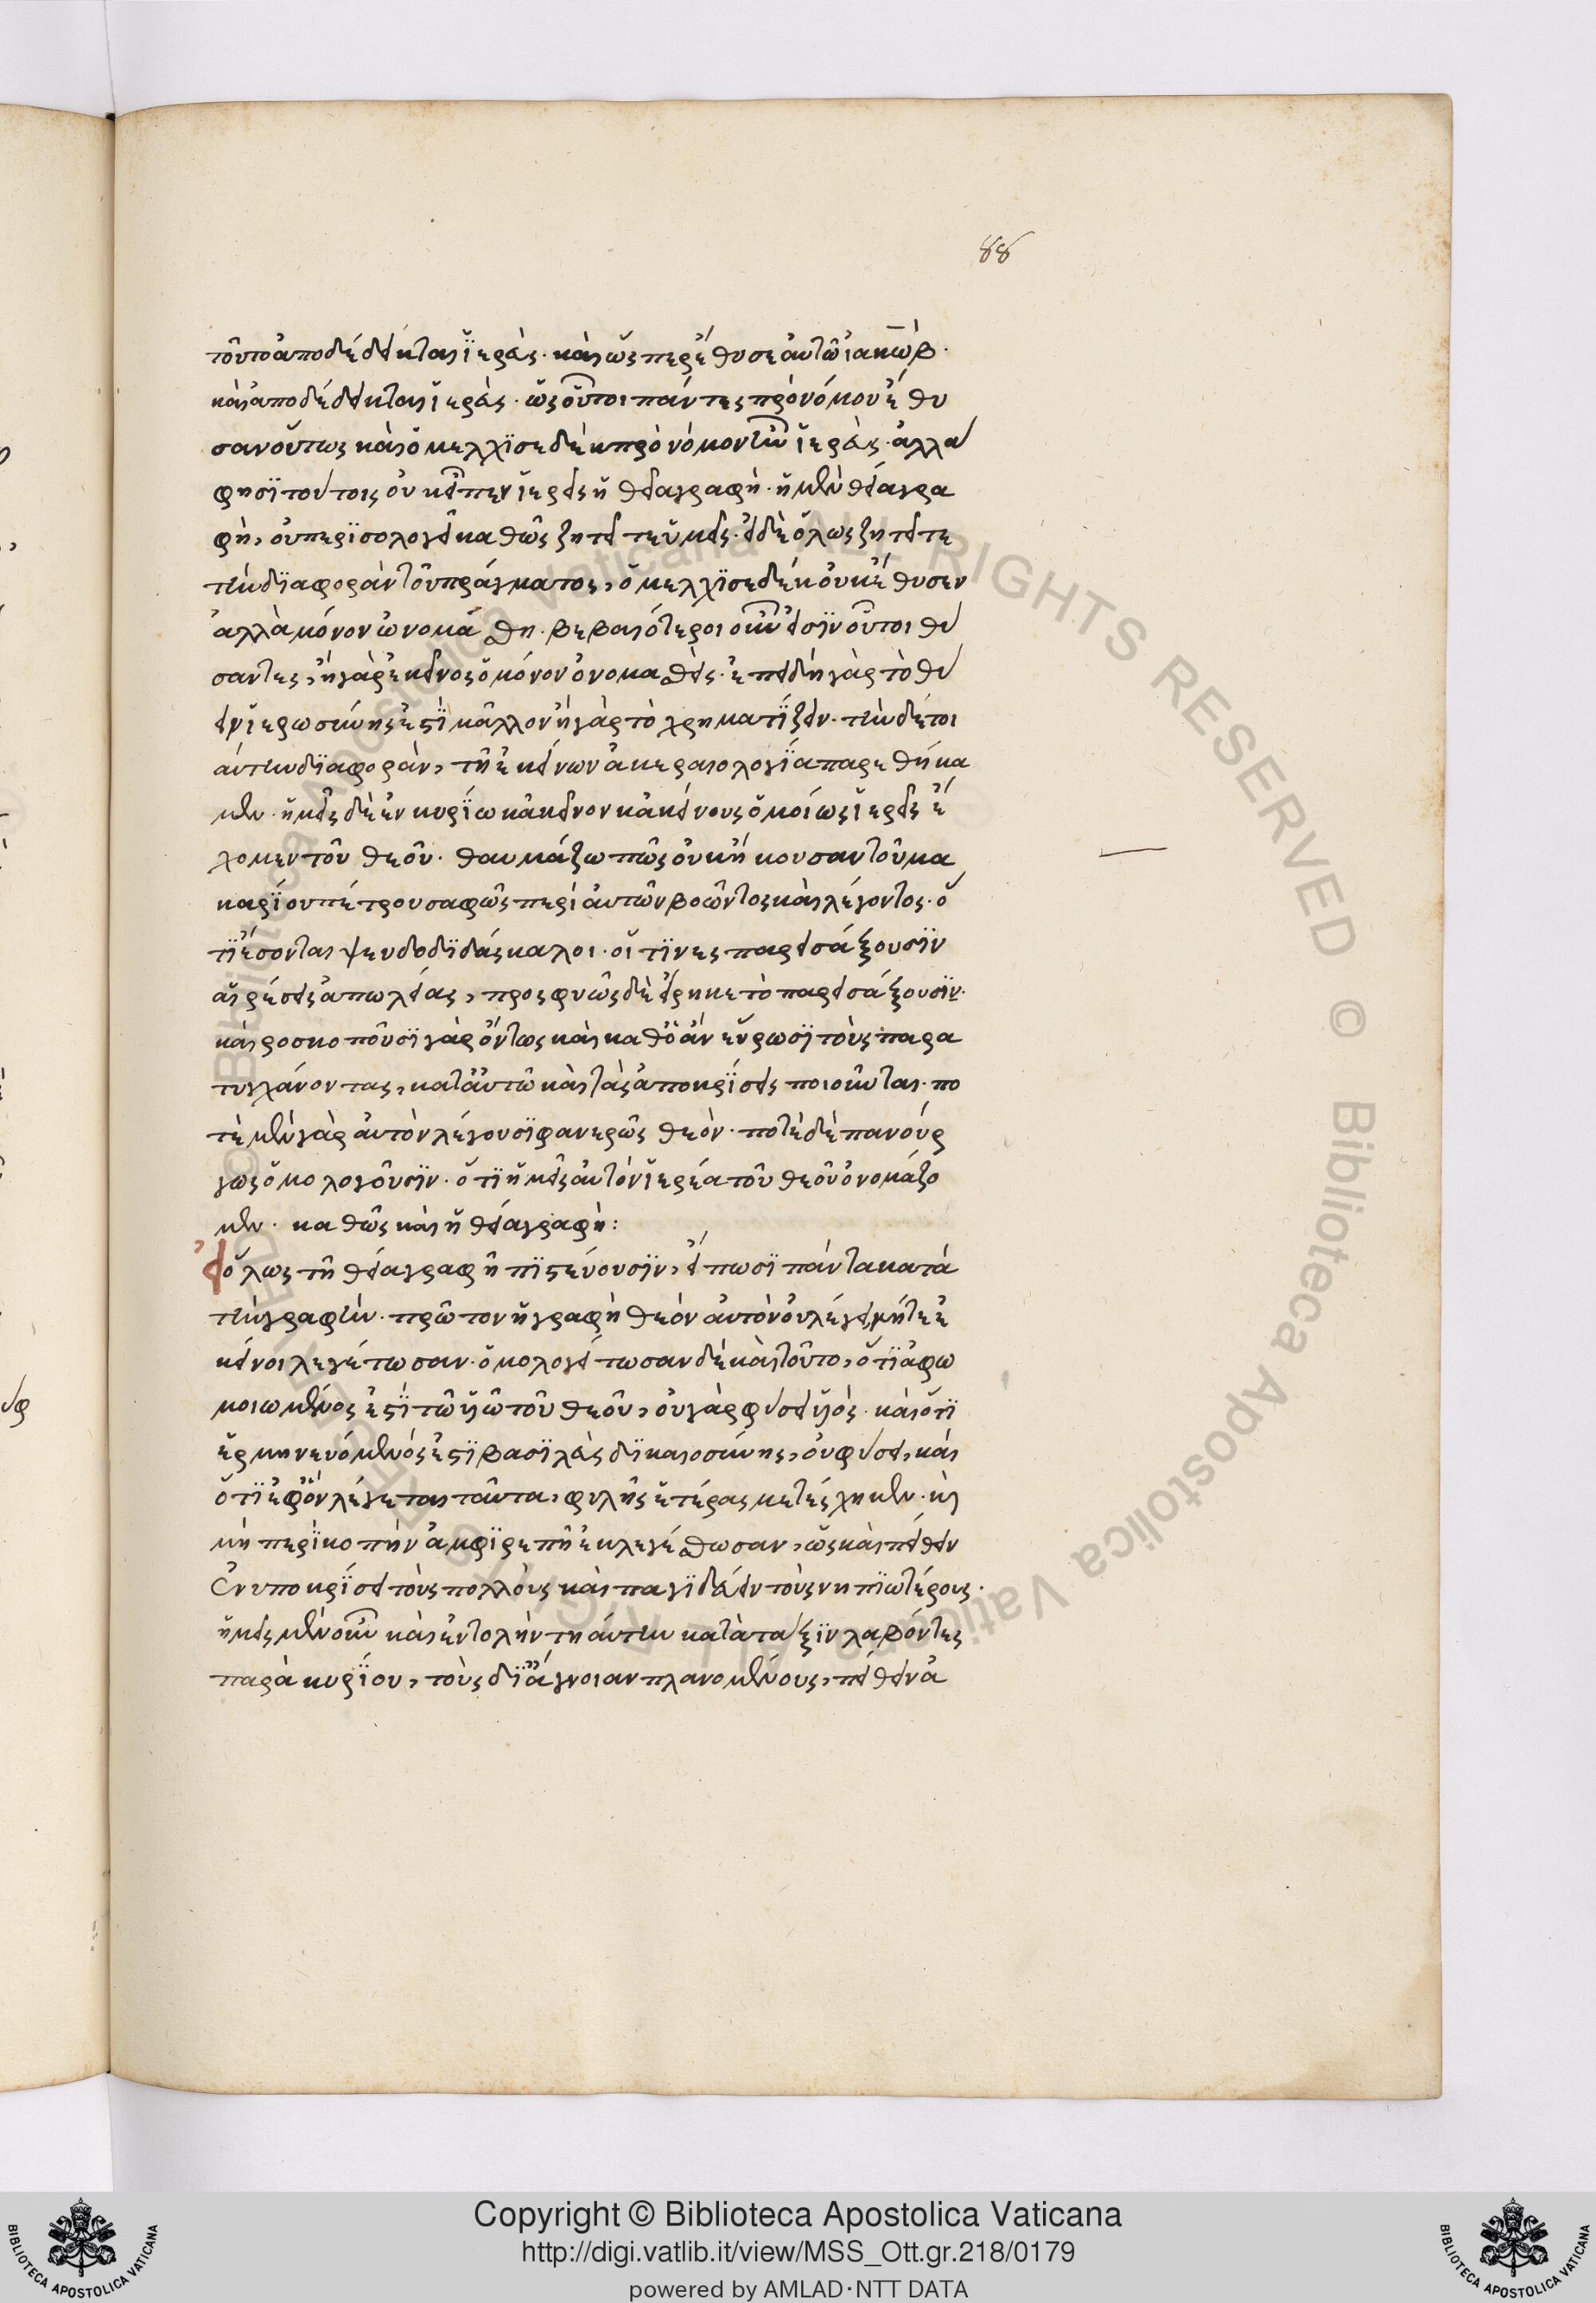 88
τοῦτο ἀποδέδεικται ἱερεύς· καὶ ὥσπερ ἔθυσε αὐτῶ ἰακὼβ·
καὶ ἀποδέδεικται ἱερεύς· ὡς οὗτοι πάντες πρὸ νόμου ἔθυ
σαν οὕτως καὶ ὁ μελχϊσεδὲκ πρὸ νόμου ἦν ἱερεύς· ἀλλὰ
φησὶ τούτοις οὐκ εἶπεν ἱερεῖς ἡ θεία γραφὴ· ἡ μὲν θεία γρα
φὴ, οὐ περϊσολογεῖ καθῶς ζητεῖτε ὑμεῖς· εἰ δὲ ὅλως ζητεῖτε
τὴν δϊαφορὰν τοῦ πράγματος, ὁ μελχϊσεδὲκ οὐκ ἔθυσεν
ἀλλὰ μόνον ὠνομάσθη· βεβαιότεροι οὖν εἰσϊν οὗτοι θύ
σαντες, ἢ γὰρ ἐκεῖνος ὁ μόνον ὀνομασθείς· ἐπειδὴ γὰρ τὸ θύ
ειν ἱερωσύνης ἐστὶ μᾶλλον ἢ γὰρ τὸ χρηματίζειν· τὴν δὲ τοι
αύτην δϊαφορὰν, τῆ ἐκείνων ἀκεραιολογίᾳ παρεθήκα
μεν· ἡμεῖς δὲ ἐν κυρίω κἀκεῖνον κἀκείνους ὁμοίως ἱερεῖς ἔ
χομεν τοῦ θεοῦ· θαυμάζω πῶς οὐκ ἤκουσαν τοῦ μα
καρίου πέτρου σαφῶς περὶ αὐτῶν βοῶντος καὶ λέγοντος· ὅ
τι ἔσονται ψευδοδϊδάσκαλοι· οἵ τϊνες παρεισάξουσϊν
αἱρέσεις ἀπωλείας, προσφυῶς δὲ εἴρηκε τὸ παρεισάξουσϊν·
καιροσκοποῦσϊ γὰρ ὄντως καὶ καθὸ ἂν εὕρωσϊ τοὺς παρα
τυγχάνοντας, κατ' αὐτῶ καὶ τὰς ἀποκρίσεις ποιοῦνται· πο
τὲ μὲν γὰρ αὐτὸν λέγουσϊ φανερῶς θεὸν· ποτὲ δὲ πανούρ
γως ὁμολογοῦσϊν· ὅτϊ ἡμεῖς αὐτὸν ἱερέα τοῦ θεοῦ ὀνομάζο
μεν· καθῶς καὶ ἡ θεία γραφὴ:
εἰ ὅλως τῆ θεία γραφῆ πϊστεύουσϊν, εἴπωσϊ πάντα κατὰ
τὴν γραφὴν· πρῶτον ἡ γραφὴ θεὸν αὐτὸν οὐ λέγει, μήτε ἐ
κεῖνοι λεγέτωσαν· ὁμολογείτωσαν δὲ καὶ τοῦτο, ὅτϊ ἀφω
μοιωμένος ἐστὶ τῶ υἱῶ τοῦ θεοῦ, οὐ γὰρ φύσει υἱός· καὶ ὅτϊ
ἑρμηνευόμενός ἐστϊ βασϊλεὺς δϊκαιοσύνης, οὐ φύσει, καὶ
ὅτϊ ἐφ' ὃν λέγεται ταῦτα, φυλῆς ἑτέρας μετέσχηκεν· καὶ
μὴ περϊκοπὴν ἀμφϊρεπῆ ἐκλεγέσθωσαν, ὡς καὶ πείθειν
ἐν ὑποκρίσει τοὺς πολλοὺς καὶ παγϊδεύειν τοὺς νηπϊωτέρους·
ἡμεῖς μὲν οὖν καὶ ἐντολὴν τηαύτην κατὰ τάξϊν λαβόντες
παρὰ κυρίου, τοὺς δϊ' ἄγνοιαν πλανομένους, πείθειν ἀ
Copyright © Biblioteca Apostolica Vaticana
http://digi.vatlib.it/view/MSS_Ott.gr.218/0179
powered by AMLAD·NTT DATA